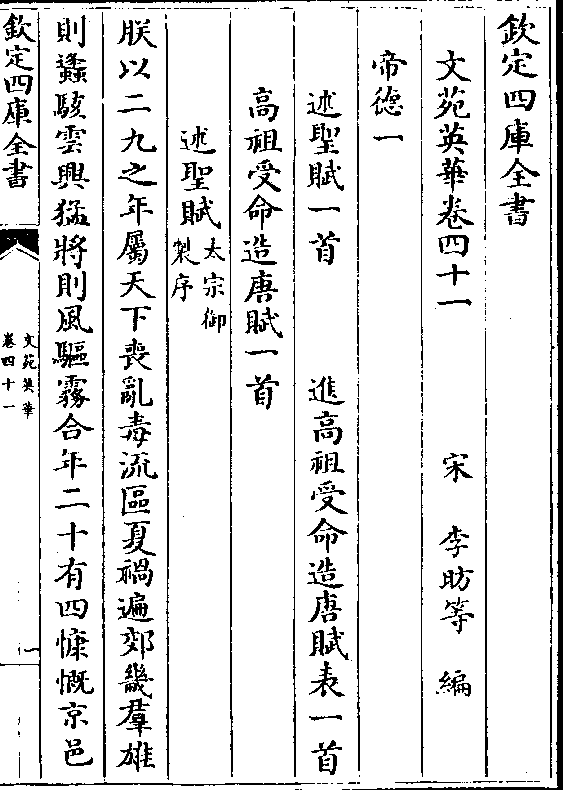 欽定四庫全書
文苑英華卷四十一　宋　李昉等　編
帝德一
述聖賦一首　進高祖受命造唐賦表一首
高祖受命造唐賦一首
述聖賦太宗御製序
朕以二九之年屬天下喪亂毒流區夏禍遍郊畿羣雄
則蠭駭雲興猛將則風驅霧合年二十有四慷慨京邑
欽定四庫全書
文苑英華
卷四十一
一